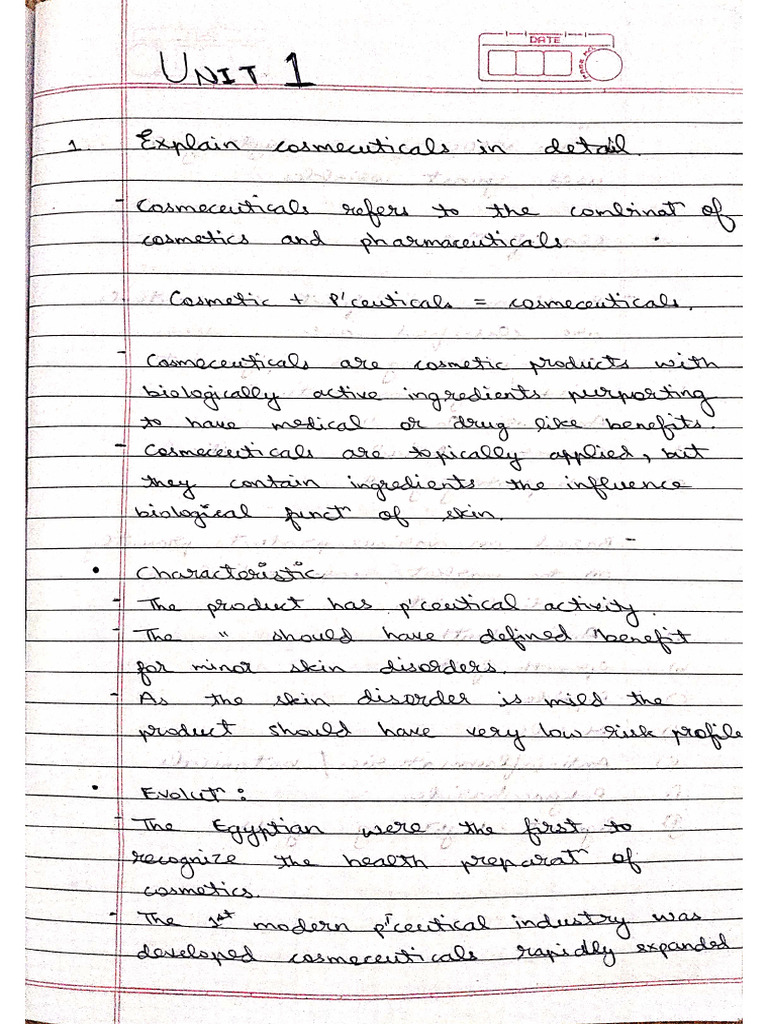 DATE
PAGE NO.
UNIT 1
1. Explain cosmeceuticals in detail.
- Cosmeceuticals refers to the combinatⁿ of
cosmetics and pharmaceuticals.
Cosmetic + P'ceuticals = cosmeceuticals.
- Cosmeceuticals are cosmetic products with
biologically active ingredients purporting
to have medical or drug like benefits.
- Cosmeceuticals are topically applied, but
they contain ingredients the influence
biological functⁿ of skin.
• Characteristic
- The product has p'ceutical activity.
- The " should have defined benefit
for minor skin disorders.
- As the skin disorder is mild the
product should have very low risk profile
• Evolutⁿ:
- The Egyptian were the first to
recognize the health preparatⁿ of
cosmetics.
- The 1st modern p'ceutical industry was
developed cosmeceuticals rapidly expanded